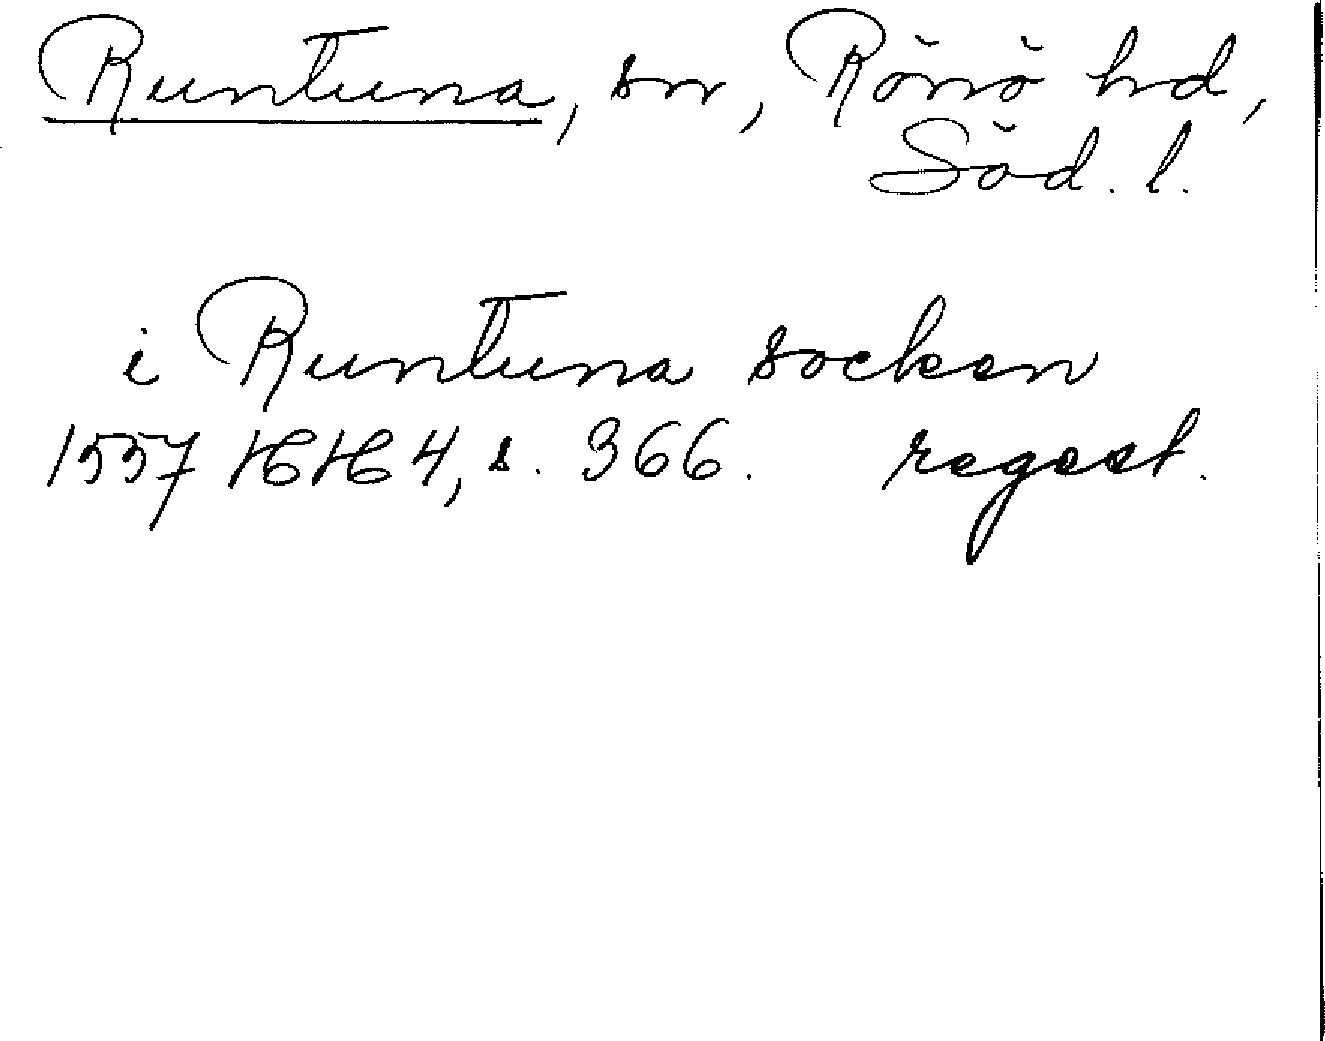 Runtuna, sn, Rönö hd,
Söd. l.
i Runtuna socken
1557 HH 4, s. 366. regest.